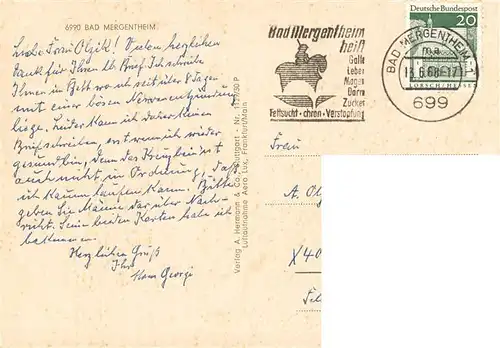 6990 BAD MERGENTHEIM
Liebe Frau Olgik! Vielen herzlichen
Dank für Ihren lb. Brief. Ich schreibe
Ihnen im Bett wo ich seit über 8 Tagen
mit einer bösen Nervenentzündung
liege. Leider kann ich daher keinen
Brief schreiben, erst wenn ich wieder
gesund bin, denn das Kreuzbein ist
auch nicht in Ordnung, daß
ich kaum laufen kann. Bitte
geben Sie Mama darüber Nach-
richt. Seine beiden Karten habe ich
bekommen.
Herzlichen Gruß
Ihr
Hans Georg
Verlag A. Hermann & Co., Stuttgart - Nr.
Luftaufnahme Aero Lux, Frankfurt/Main
Bad Mergentheim
heilt
Galle
Leber
Magen
Darm
Zucker
Fettsucht - chron. Verstopfung
Deutsche Bundespost
20
LORSCH/HESSEN
BAD MERGENTHEIM 1
ma
13.6.68-17
699
Frau
A. Olg
X40